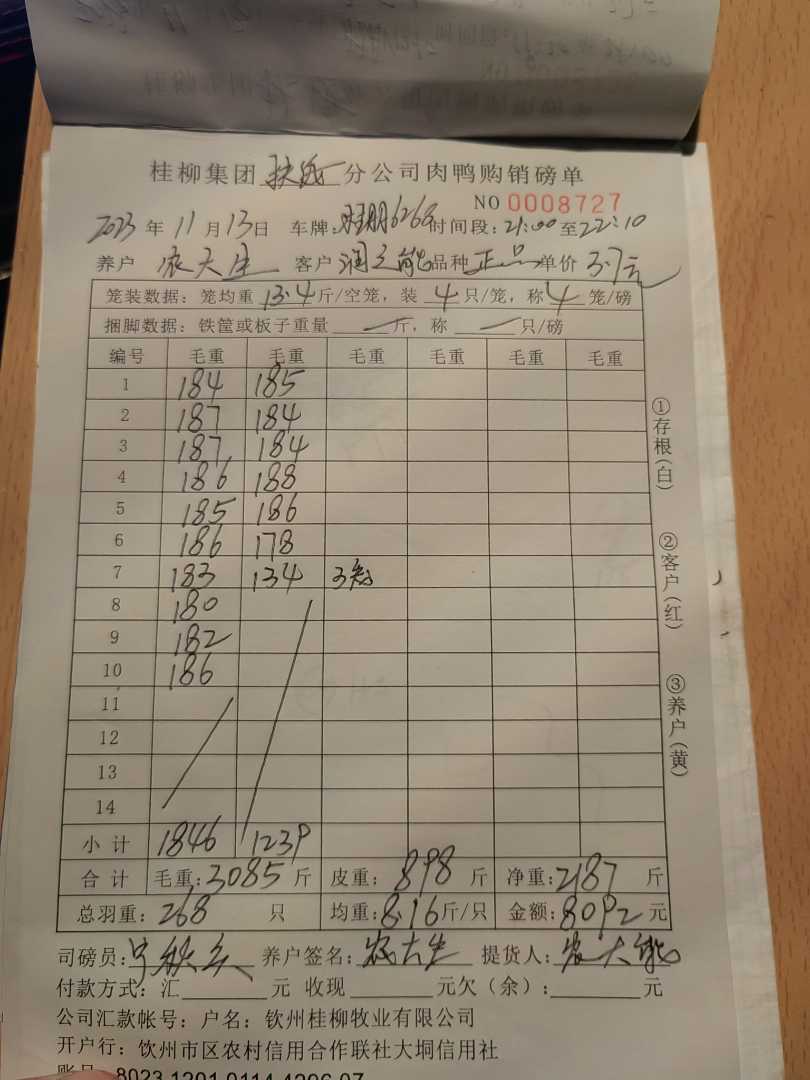 桂柳集团 分公司肉鸭购销磅单
NO 0008727
2023 年 11 月 13 日 车牌: 6266 时间段: 21:00 至 22:10
养户 农大生 客户 品种 正品 单价 3.7元
笼装数据: 笼均重 13.4 斤/空笼, 装 4 只/笼, 称 4 笼/磅
捆脚数据: 铁筐或板子重量 一 斤, 称 一 只/磅
编号 毛重 毛重 毛重 毛重 毛重 毛重
1 184 185
2 187 184
3 187 184
4 186 188
5 185 186
6 186 178
7 183 134 3笼
8 180
9 182
10 186
11
12
13
14
小计 1846 1239
合计 毛重: 3085 斤 皮重: 898 斤 净重: 2187 斤
总羽重: 268 只 均重: 8.16 斤/只 金额: 8092 元
司磅员: 养户签名: 农大生 提货人: 农大能
付款方式: 汇 元 收现 元欠(余): 元
公司汇款帐号: 户名: 钦州桂柳牧业有限公司
开户行: 钦州市区农村信用合作联社大垌信用社
账号 8023 1201 0114 4296 07
①存根(白)
②客户(红)
③养户(黄)